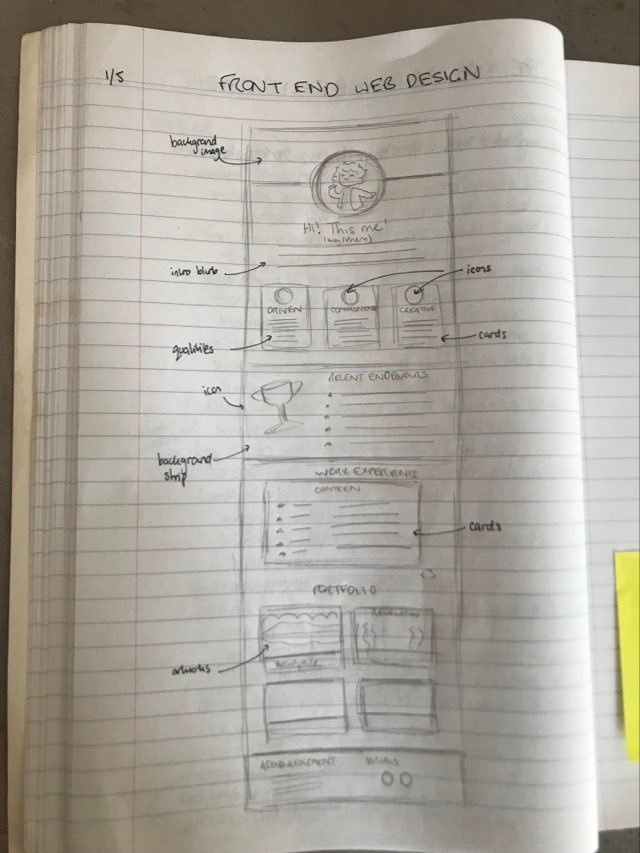 1/5
FRONT END WEB DESIGN
background
image
Hi! This me!
intro blurb
icons
DRIVEN
CREATIVE
qualities
cards
RECENT ENDEVOURS
icon
background
strip
WORK EXPERIENCE
CANTEEN
cards
PORTFOLIO
ACKNOWLEDGEMENT
SOCIALS